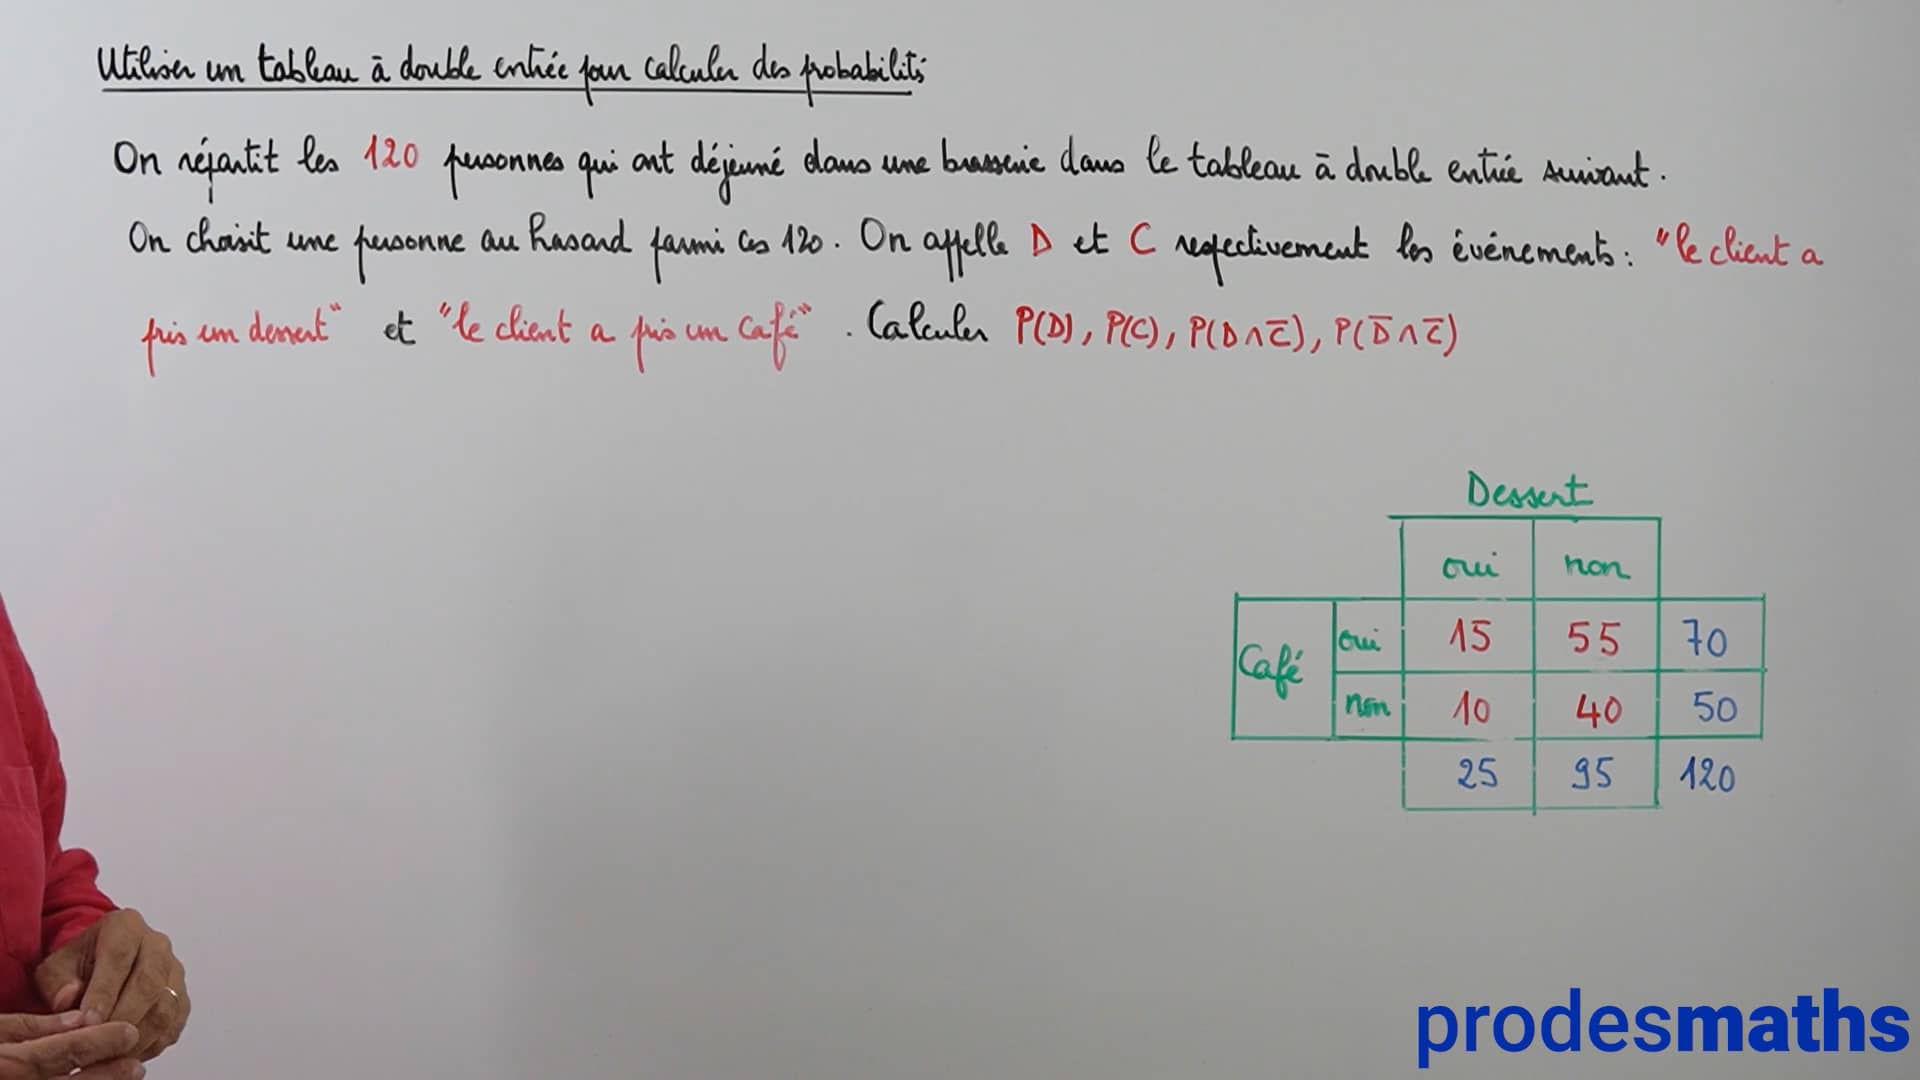 Utiliser un tableau à double entrée pour calculer des probabilités
On répartit les 120 personnes qui ont déjeuné dans une brasserie dans le tableau à double entrée suivant.
On choisit une personne au hasard parmi ces 120. On appelle D et C respectivement les événements : "le client a
pris un dessert" et "le client a pris un café". Calculer P(D), P(C), P(D∩C̅), P(D̅∩C̅)
Dessert
oui non
Café oui 15 55 70
non 10 40 50
25 95 120
prodesmaths